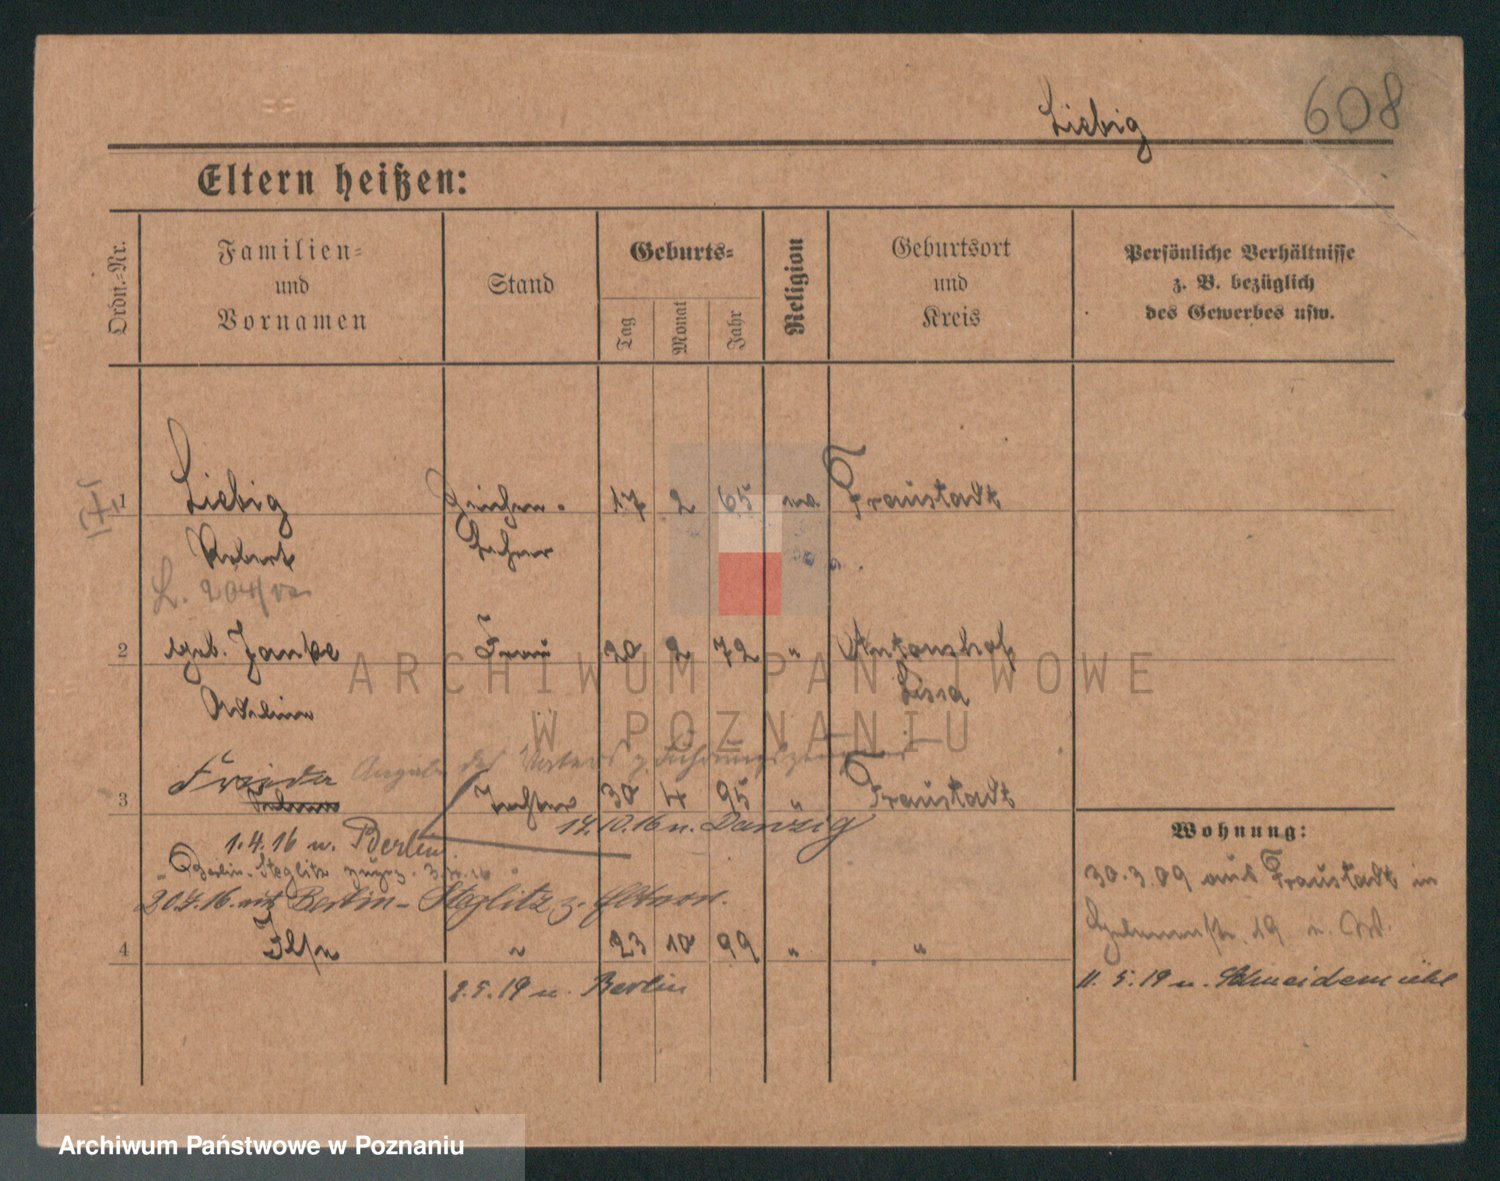 608
Liebig
Eltern heißen:
Ordn.-Nr.
Familien-
und
Vornamen
Stand
Geburts-
Tag
Monat
Jahr
Religion
Geburtsort
und
Kreis
Persönliche Verhältnisse
z. B. bezüglich
des Gewerbes usw.
1 Liebig Zeichen- 17 2 65 ev. Fraustadt
Lehrer
2 geb. Janke Frau 20 2 72 " Antonshof
Lissa
Angabe des Vaters
3 Frieda Tochter 30 4 95 " Fraustadt
14.10.16 n. Danzig
1.4.16 n. Berlin
Wohnung:
" Berlin-Steglitz
30.3.09 aus Fraustadt in
20.4.16 Berlin-Steglitz z.
19
4 Ilse " 23 10 99 " "
2.5.19 n. Berlin
11.5.19 n. Schneidemühl
ARCHIWUM PAŃSTWOWE
W POZNANIU
Archiwum Państwowe w Poznaniu